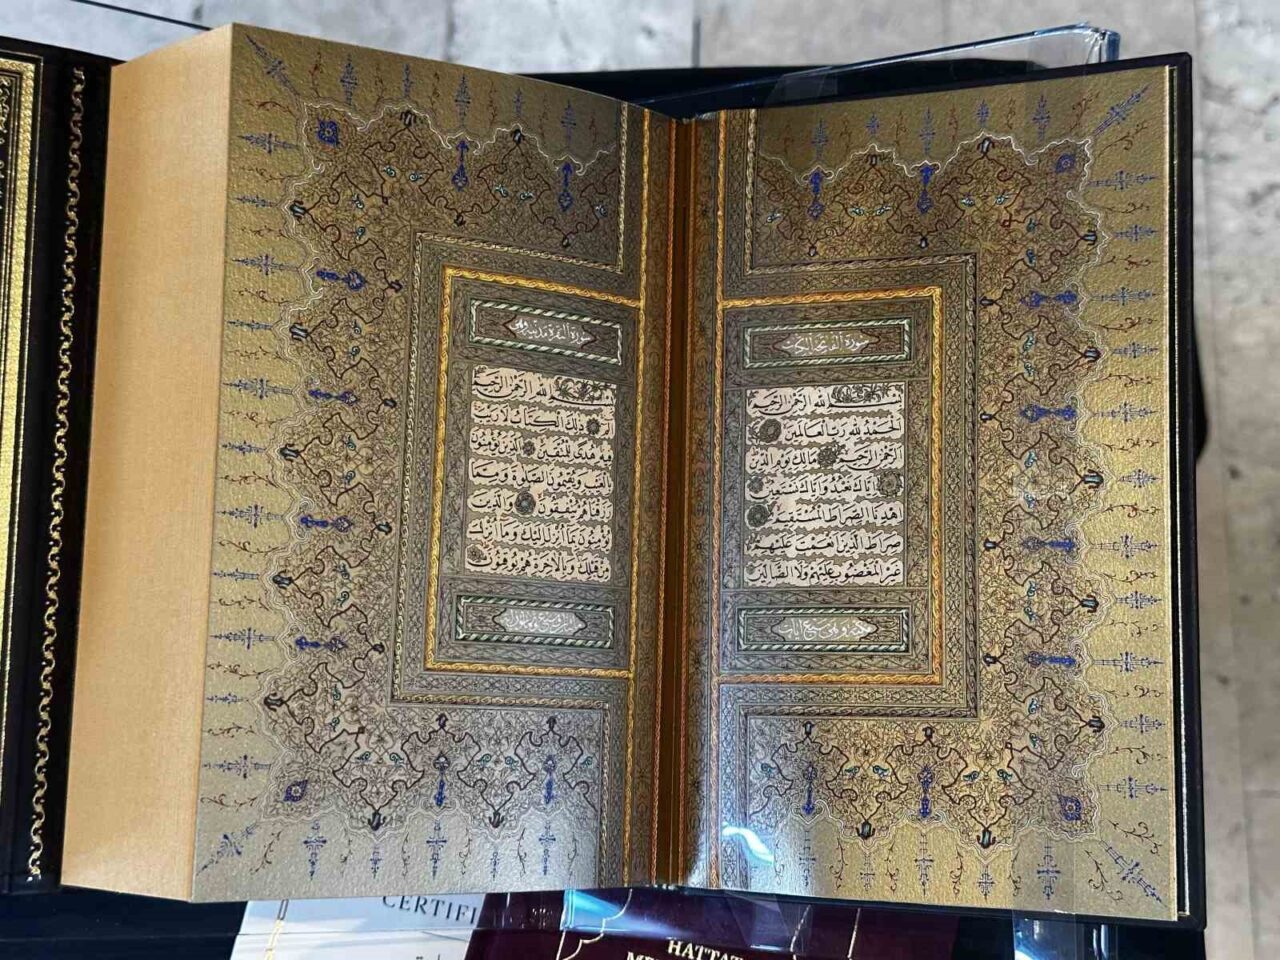 سورة الفاتحة الكتاب
بسم الله الرحمن الرحيم
الحمد لله رب العالمين
الرحمن الرحيم مالك يوم الدين
اياك نعبد واياك نستعين
اهدنا الصراط المستقيم
صراط الذين انعمت عليهم
غير المغضوب عليهم ولا الضالين
مكية وهي سبع ايات
سورة البقرة مدنية وهي
بسم الله الرحمن الرحيم
الم ذلك الكتاب لا ريب
فيه هدى للمتقين الذين يؤمنون
بالغيب ويقيمون الصلوة ومما
رزقناهم ينفقون والذين
يؤمنون بما انزل اليك وما انزل
من قبلك وبالاخرة هم يوقنون
CERTIFI
HATTAT